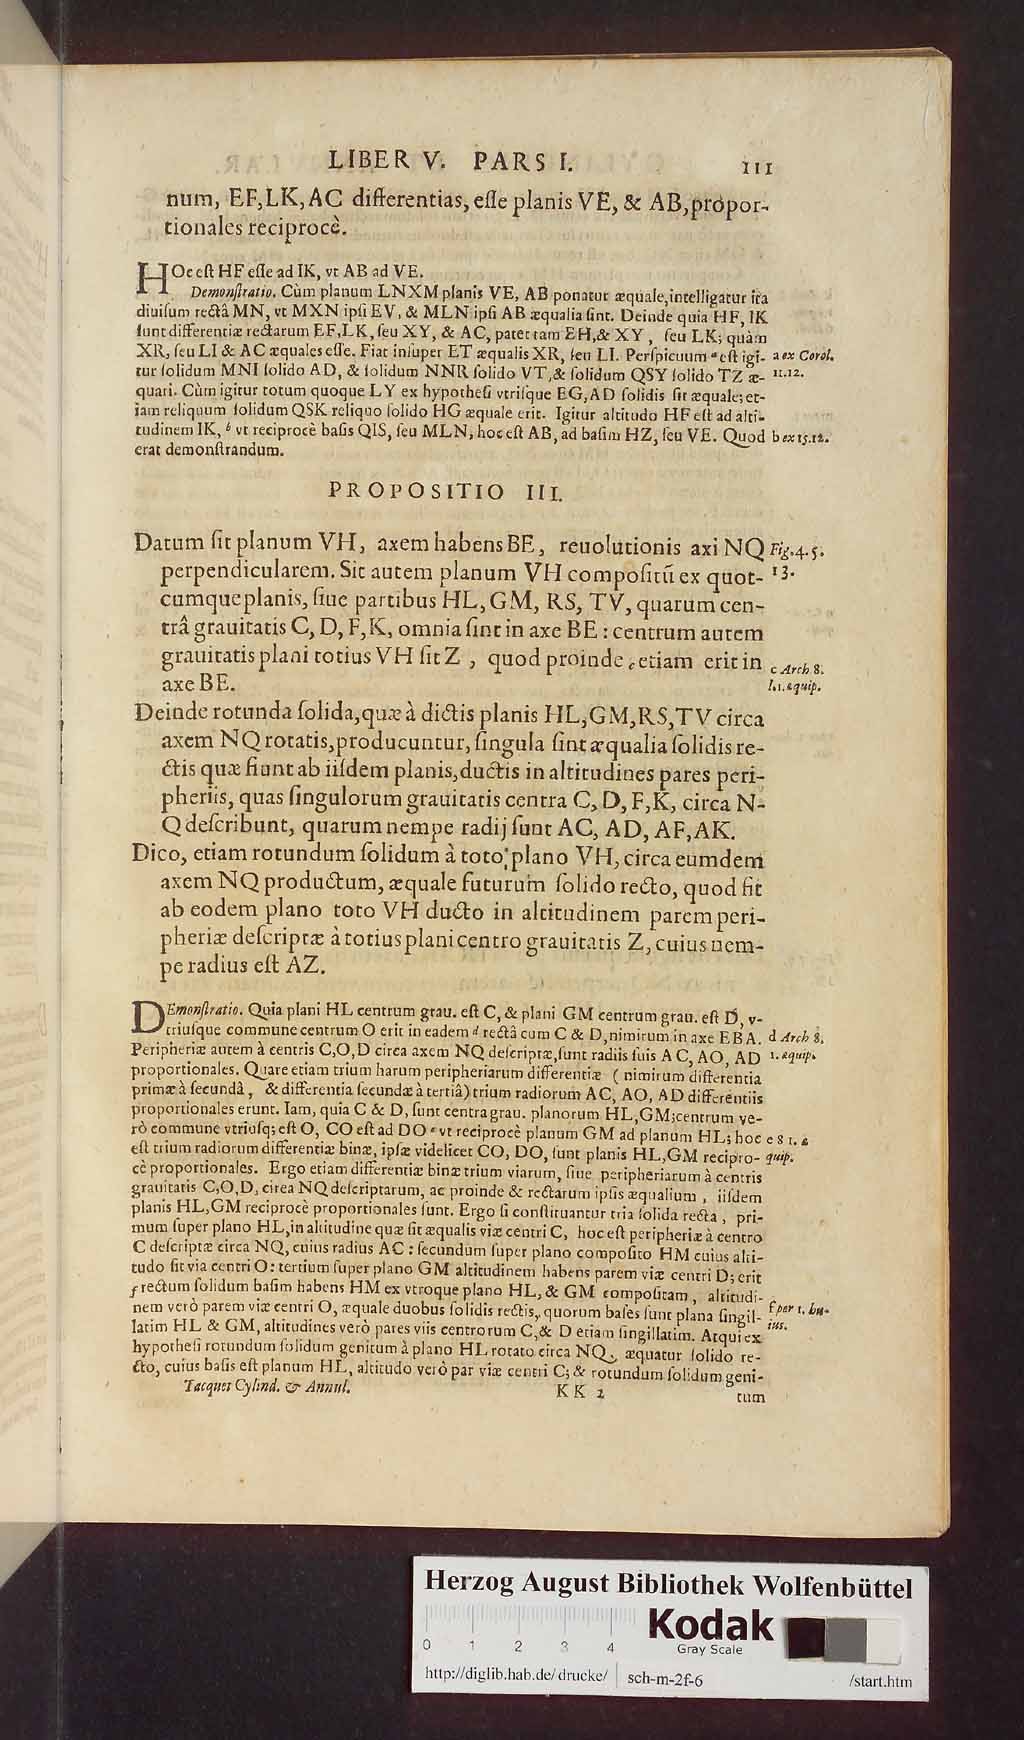 LIBER V. PARS I. 111
num, EF, LK, AC differentias, eſſe planis VE, & AB, propor-
tionales reciprocè.
HOc eſt HF eſſe ad IK, vt AB ad VE.
Demonſtratio. Cùm planum LNXM planis VE, AB ponatur æquale, intelligatur ita
diuiſum rectâ MN, vt MXN ipſi EV, & MLN ipſi AB æqualia ſint. Deinde quia HF, IK
ſunt differentiæ rectarum EF, LK, ſeu XY, & AC, patet tam EH, & XY, ſeu LK; quàm
XR, ſeu LI & AC æquales eſſe. Fiat inſuper ET æqualis XR, ſeu LI. Perſpicuum a eſt igi- a ex Corol.
tur ſolidum MNI ſolido AD, & ſolidum NNR ſolido VT, & ſolidum QSY ſolido TZ æ- 11.12.
quari. Cùm igitur totum quoque LY ex hypotheſi vtriſque EG, AD ſolidis ſit æquale; et-
iam reliquum ſolidum QSK reliquo ſolido HG æquale erit. Igitur altitudo HF eſt ad alti-
tudinem IK, b vt reciprocè baſis QIS, ſeu MLN, hoc eſt AB, ad baſim HZ, ſeu VE. Quod b ex 15.12.
erat demonſtrandum.
PROPOSITIO III.
Datum ſit planum VH, axem habens BE, reuolutionis axi NQ Fig. 4. 5.
perpendicularem. Sit autem planum VH compoſitũ ex quot- 13.
cumque planis, ſiue partibus HL, GM, RS, TV, quarum cen-
trâ grauitatis C, D, F, K, omnia ſint in axe BE: centrum autem
grauitatis plani totius VH ſit Z, quod proinde c etiam erit in c Arch 8.
axe BE. l. 1. æquip.
Deinde rotunda ſolida, quæ à dictis planis HL, GM, RS, TV circa
axem NQ rotatis, producuntur, ſingula ſint æqualia ſolidis re-
ctis quæ fiunt ab iiſdem planis, ductis in altitudines pares peri-
pheriis, quas ſingulorum grauitatis centra C, D, F, K, circa N-
Q deſcribunt, quarum nempe radij ſunt AC, AD, AF, AK.
Dico, etiam rotundum ſolidum à toto plano VH, circa eumdem
axem NQ productum, æquale futurum ſolido recto, quod fit
ab eodem plano toto VH ducto in altitudinem parem peri-
pheriæ deſcriptæ à totius plani centro grauitatis Z, cuius nem-
pe radius eſt AZ.
DEmonſtratio. Quia plani HL centrum grau. eſt C, & plani GM centrum grau. eſt D, v-
triuſque commune centrum O erit in eadem d rectâ cum C & D, nimirum in axe EBA. d Arch 8.
Peripheriæ autem à centris C, O, D circa axem NQ deſcriptæ, ſunt radiis ſuis AC, AO, AD 1. æquip.
proportionales. Quare etiam trium harum peripheriarum differentiæ ( nimirum differentia
primæ à ſecundâ, & differentia ſecundæ à tertiâ) trium radiorum AC, AO, AD differentiis
proportionales erunt. Iam, quia C & D, ſunt centra grau. planorum HL, GM; centrum ve-
rò commune vtriuſq; eſt O, CO eſt ad DO e vt reciprocè planum GM ad planum HL; hoc e 8 1. æ
eſt trium radiorum differentiæ binæ, ipſæ videlicet CO, DO, ſunt planis HL, GM recipro- quip.
cè proportionales. Ergo etiam differentiæ binæ trium viarum, ſiue peripheriarum à centris
grauitatis C, O, D, circa NQ deſcriptarum, ac proinde & rectarum ipſis æqualium, iiſdem
planis HL, GM reciprocè proportionales ſunt. Ergo ſi conſtituantur tria ſolida recta, pri-
mum ſuper plano HL, in altitudine quæ ſit æqualis viæ centri C, hoc eſt peripheriæ à centro
C deſcriptæ circa NQ, cuius radius AC: ſecundum ſuper plano compoſito HM cuius alti-
tudo ſit via centri O: tertium ſuper plano GM altitudinem habens parem viæ centri D; erit
f rectum ſolidum baſim habens HM ex vtroque plano HL, & GM compoſitam, altitudi-
nem verò parem viæ centri O, æquale duobus ſolidis rectis, quorum baſes ſunt plana ſingil- f per 1. hu-
latim HL & GM, altitudines verò pares viis centrorum C, & D etiam ſingillatim. Atqui ex ius.
hypotheſi rotundum ſolidum genitum à plano HL rotato circa NQ, æquatur ſolido re-
cto, cuius baſis eſt planum HL, altitudo verò par viæ centri C; & rotundum ſolidum geni-
Tacquet Cylind. & Annul. KK 2 tum
Herzog August Bibliothek Wolfenbüttel
0 1 2 3 4
Kodak
Gray Scale
http://diglib.hab.de/drucke/ sch-m-2f-6 /start.htm